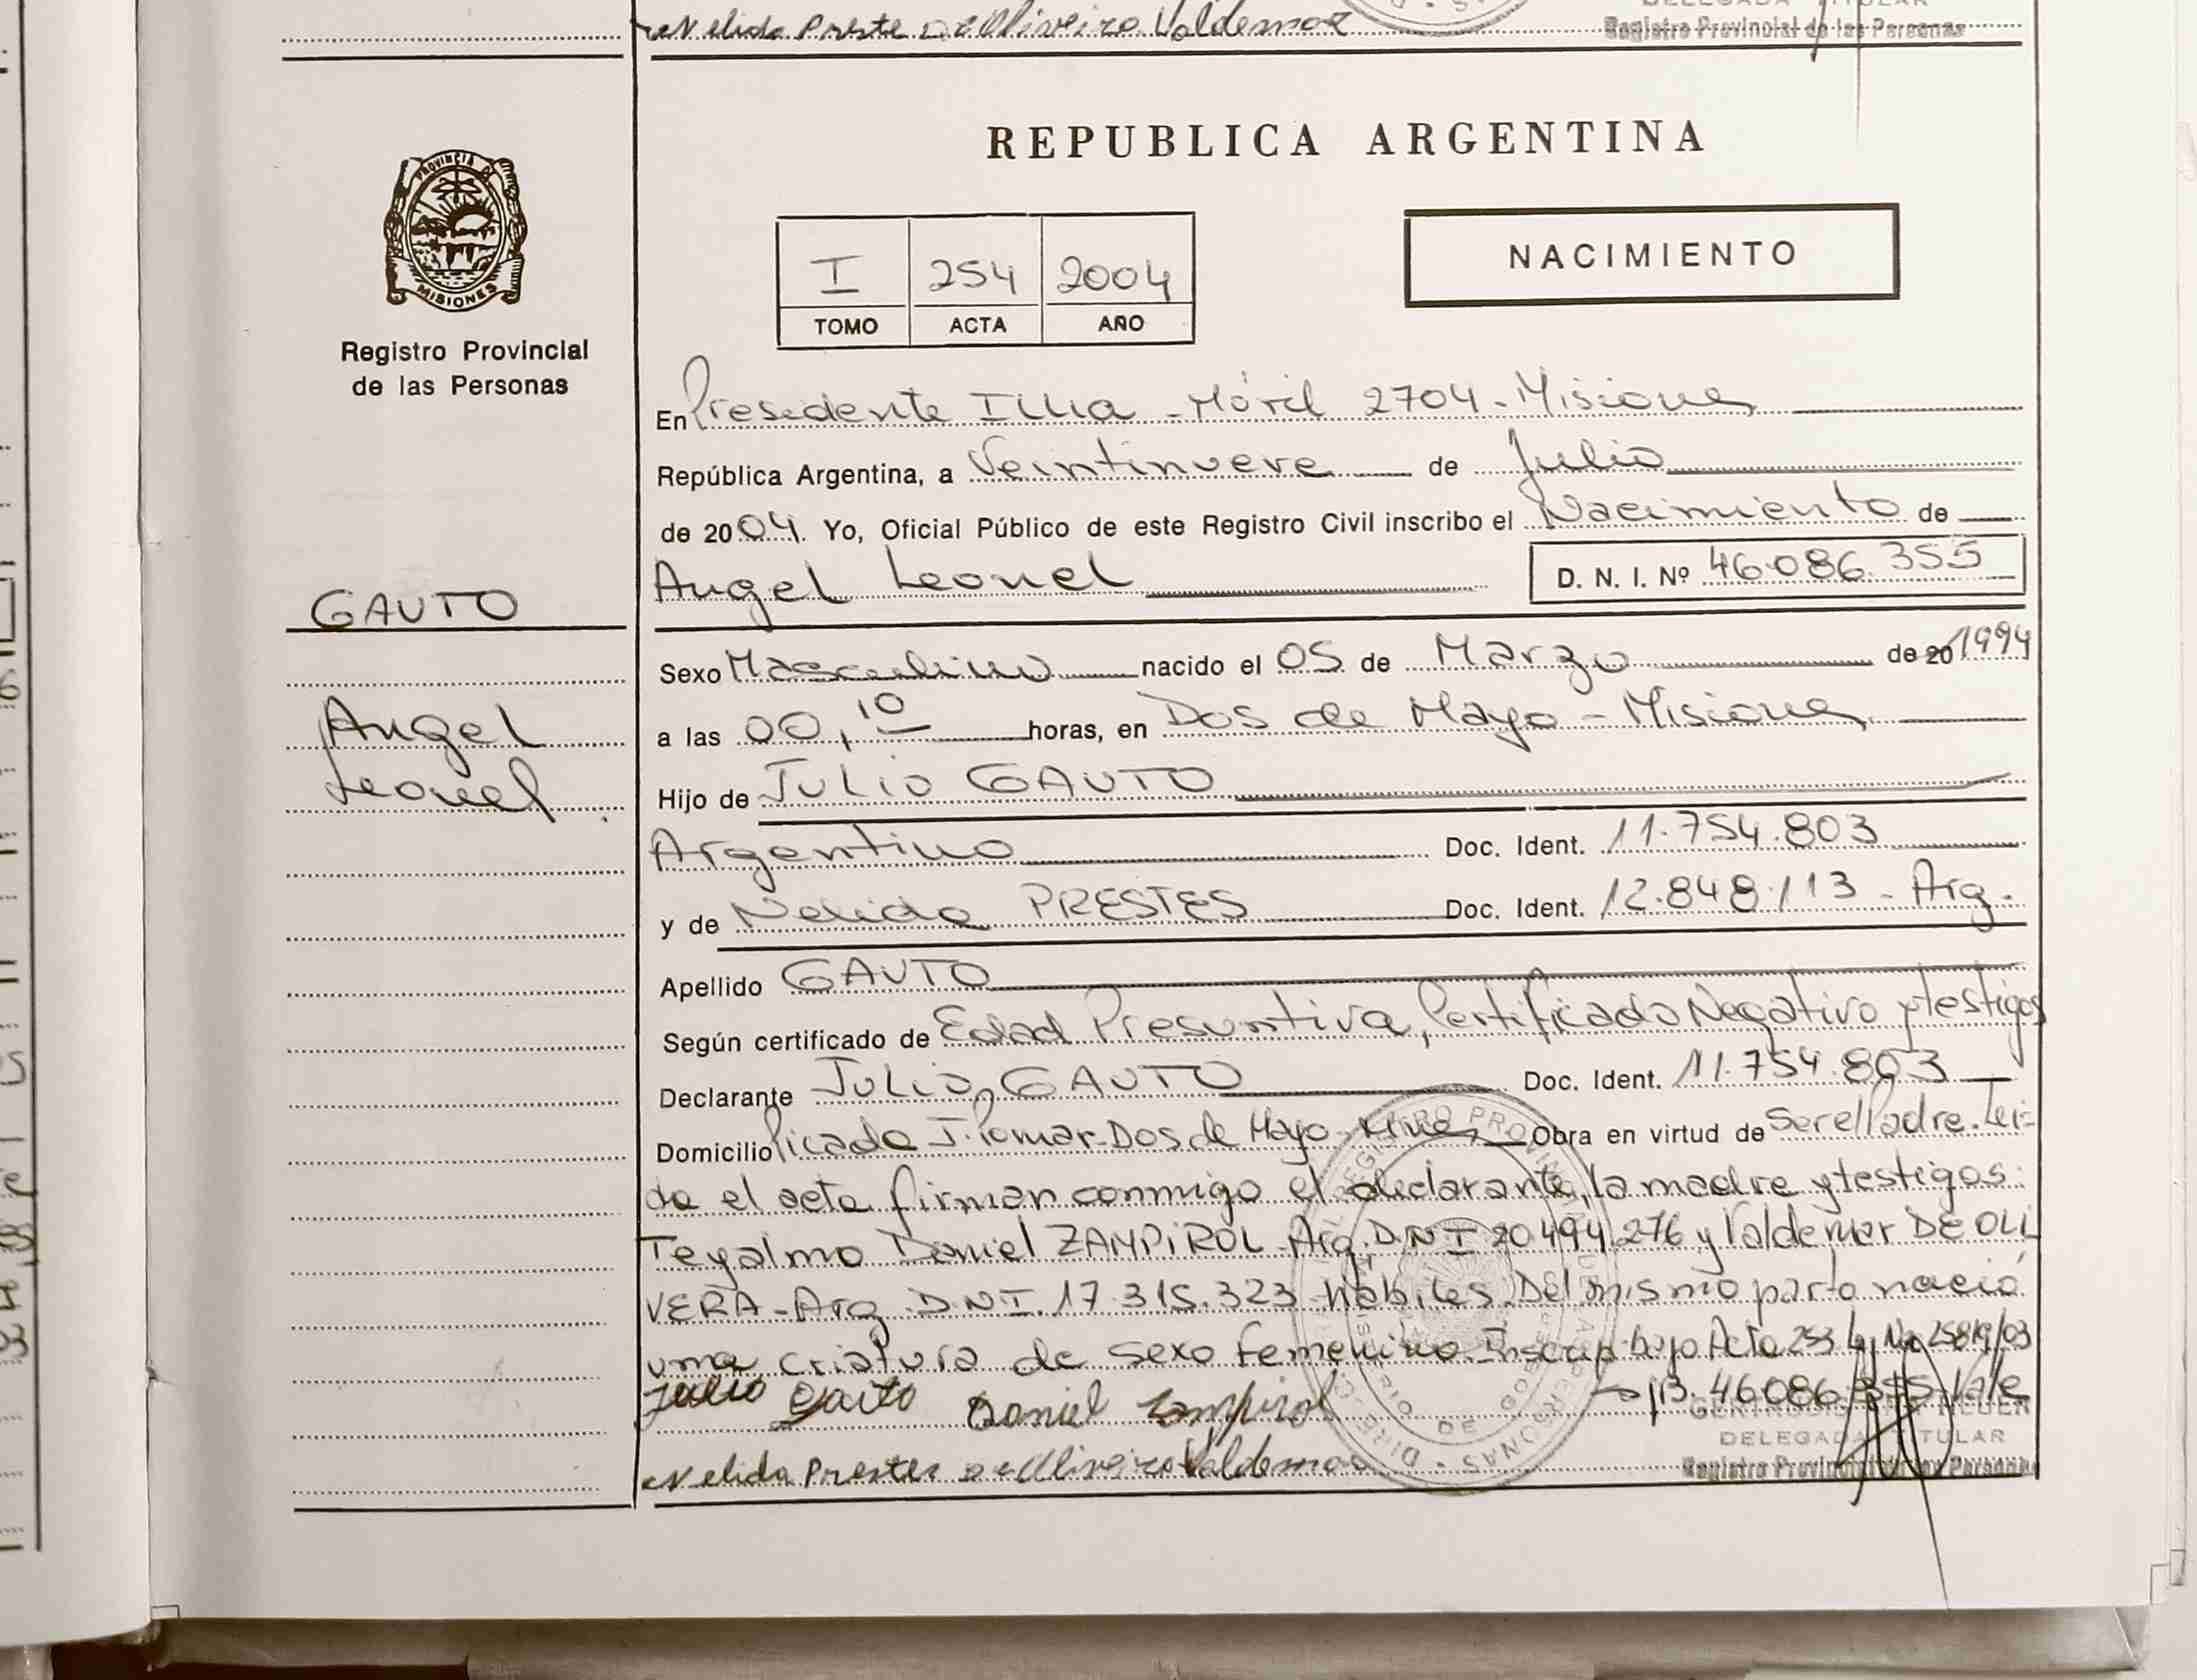 Nelida Preste De Oliveira Valdemar
Registro Provincial de las Personas
PROVINCIA DE
MISIONES
Registro Provincial
de las Personas
REPUBLICA ARGENTINA
I 254 2004
TOMO ACTA AÑO
NACIMIENTO
En Presidente Illia - Móvil 2704 - Misiones
República Argentina, a Veintinueve de Julio
de 2004. Yo, Oficial Público de este Registro Civil inscribo el Nacimiento de
Angel Leonel D. N. I. Nº 46.086.355
GAUTO
Sexo Masculino nacido el 05 de Marzo de 20 1994
Angel
a las 00,10 horas, en Dos de Mayo - Misiones
Leonel
Hijo de JULIO GAUTO
Argentino Doc. Ident. 11.754.803
y de Nelida PRESTES Doc. Ident. 12.848.113 - Arg.
Apellido GAUTO
Según certificado de Edad Presuntiva, Certificado Negativo y testigos
Declarante JULIO GAUTO Doc. Ident. 11.754.803
Domicilio Picada J. Pomar - Dos de Mayo - Mnes, Obra en virtud de Ser el Padre. Lei-
da el acta firman conmigo el declarante, la madre y testigos:
Teyalmo Daniel ZAMPIROL - Arg. D N I 20 494 276 y Valdemar DE OLI
VERA - Arg. D N I. 17.315.323 Hábiles. Del mismo parto nació
una criatura de sexo femenino. Inscrip. bajo Acta 253
46086 Vale
Julio Gauto Daniel Zampirol
DELEGADA TITULAR
Nelida Prestes De Oliveira Valdemar
Registro Provincial de las Personas